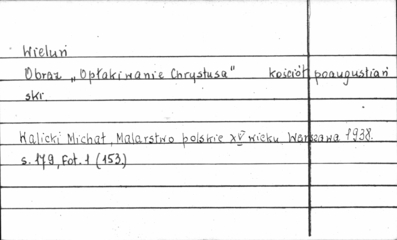 Wieluń
Obraz „Opłakiwanie Chrystusa" kościół poaugustiań
ski.
Walicki Michał, Malarstwo polskie XV wieku, Warszawa 1938.
s. 179, Fot. 1 (153.)